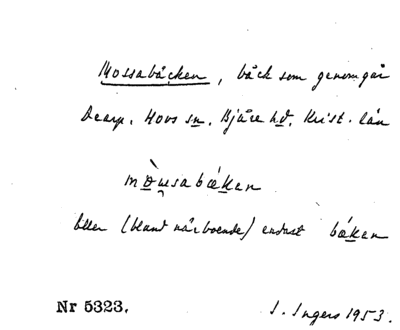 Mossabäcken, bäck som genomgår
Dearp, Hovs sn, Bjäre hd. Krist. län
mòusabæken
eller (bland närboende) endast bæken
Nr 5323.
I. Ingers 1953.